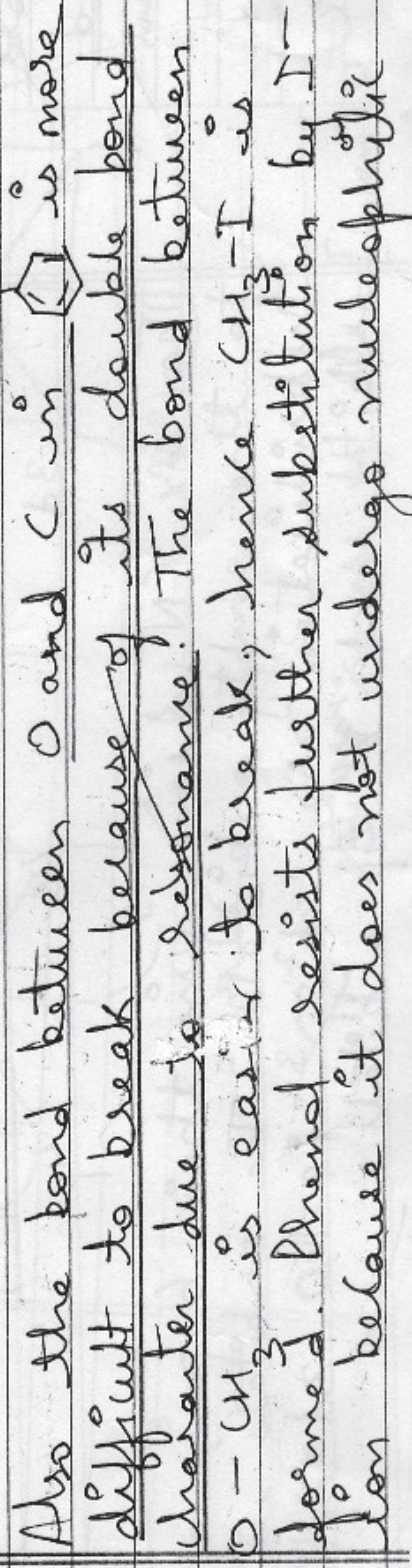 Also the bond between O and C in is more
difficult to break because of its double bond
character due to resonance. The bond between
O - CH3 is easier to break, hence CH3-I is
formed. Phenol resists further substitution by I-
ion because it does not undergo nucleophilic